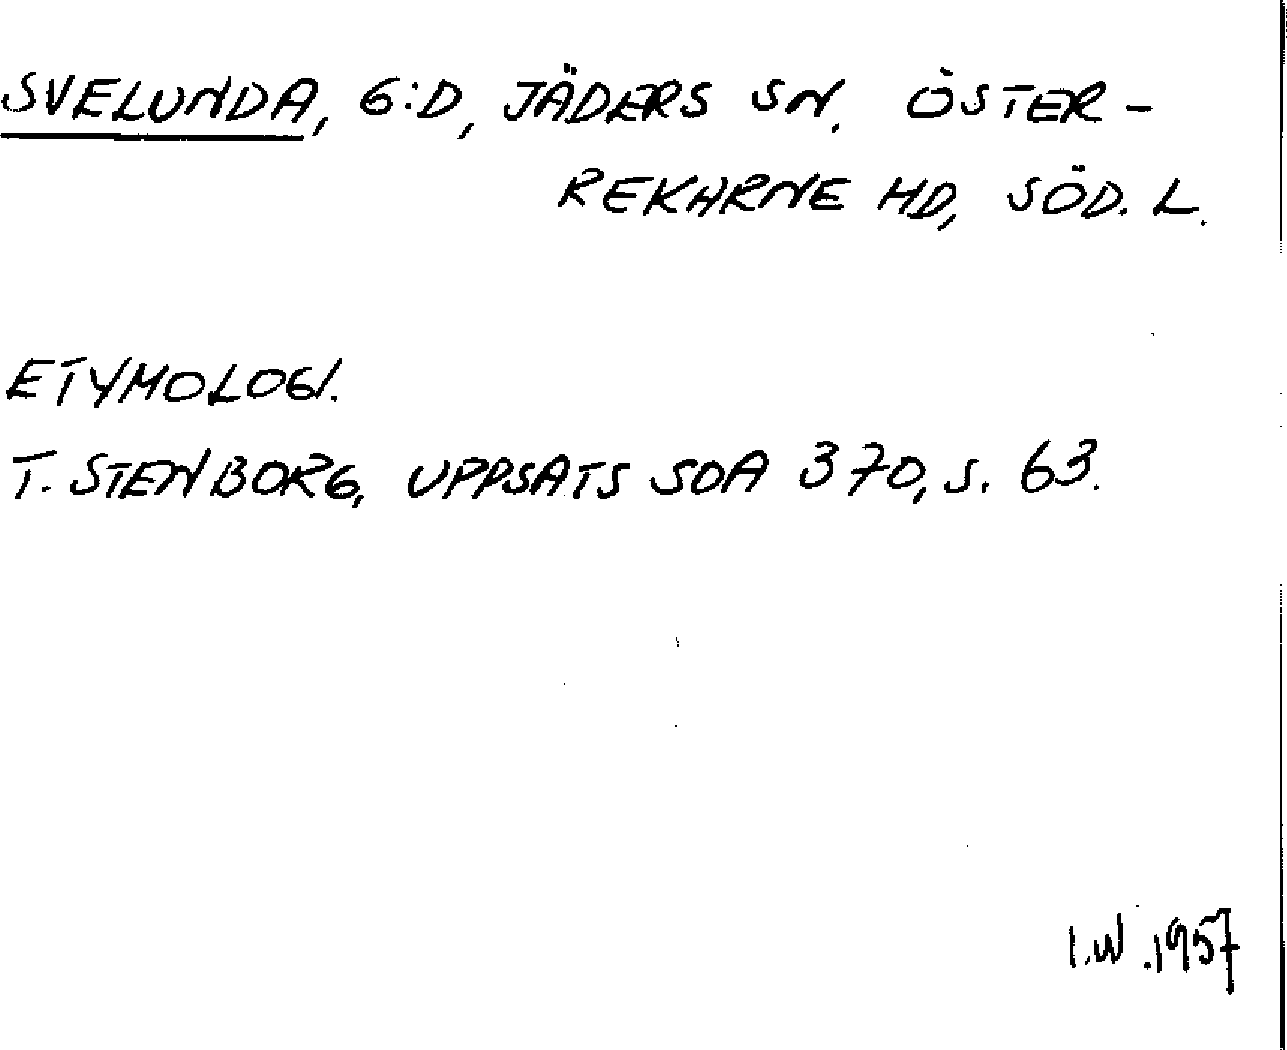 SVELUNDA, G:D, JÄDERS SN. ÖSTER-
REKARNE HD, SÖD. L.
ETYMOLOGI.
T. STENBORG, UPPSATS SOA 370, S. 63.
I.W. 1957